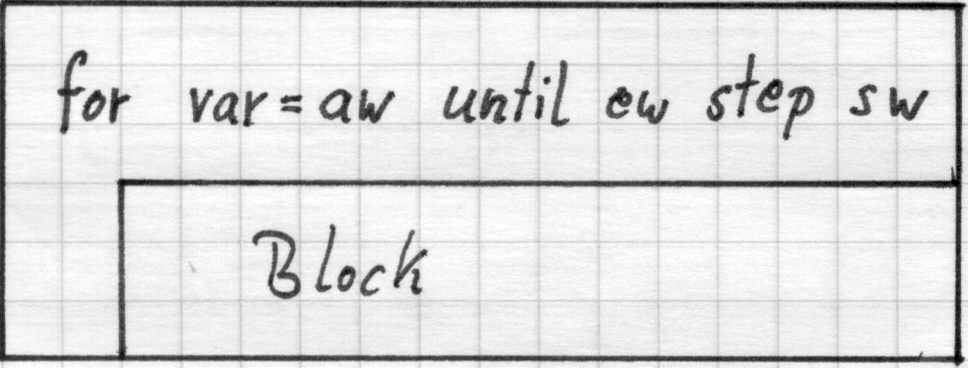 for var = aw until ew step sw
Block